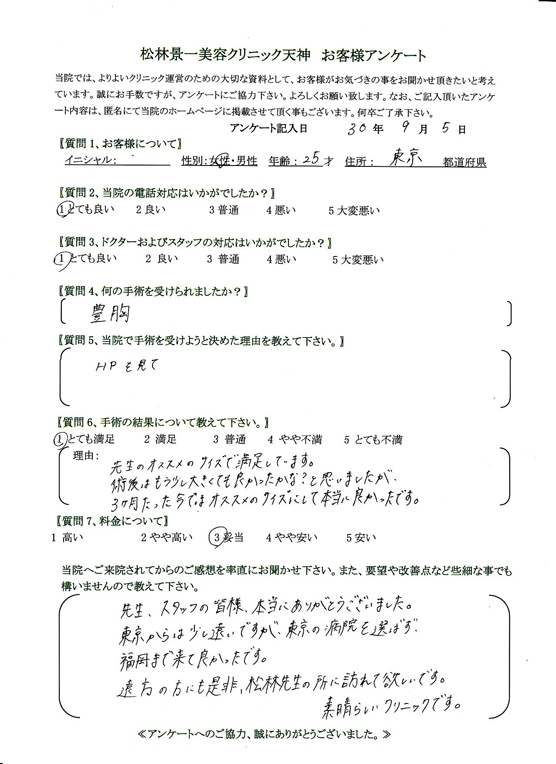 松林景一美容クリニック天神　お客様アンケート
当院では、よりよいクリニック運営のための大切な資料として、お客様がお気づきの事をお聞かせ頂きたいと考え
ています。誠にお手数ですが、アンケートにご協力下さい。よろしくお願い致します。なお、ご記入頂いたアンケ
ート内容は、匿名にて当院のホームページに掲載させて頂く事もございます。何卒ご了承下さい。
アンケート記入日　30 年　9 月　5 日
【質問1、お客様について】
イニシャル：　性別：女性・男性　年齢：25才　住所：　東京　都道府県
【質問2、当院の電話対応はいかがでしたか？】
1 とても良い　2 良い　3 普通　4 悪い　5 大変悪い
【質問3、ドクターおよびスタッフの対応はいかがでしたか？】
1 とても良い　2 良い　3 普通　4 悪い　5 大変悪い
【質問4、何の手術を受けられましたか？】
豊胸
【質問5、当院で手術を受けようと決めた理由を教えて下さい。】
HPを見て
【質問6、手術の結果について教えて下さい。】
1 とても満足　2 満足　3 普通　4 やや不満　5 とても不満
理由：
先生のオススメのサイズで満足しています。
術後はもう少し大きくても良かったかな？と思いましたが、
3ヶ月たった今ではオススメのサイズにして本当に良かったです。
【質問7、料金について】
1 高い　2 やや高い　3 妥当　4 やや安い　5 安い
当院へご来院されてからのご感想を率直にお聞かせ下さい。また、要望や改善点など些細な事でも
構いませんので教えて下さい。
先生、スタッフの皆様、本当にありがとうございました。
東京からは少し遠いですが、東京の病院を選ばず、
福岡まで来て良かったです。
遠方の方にも是非、松林先生の所に訪れて欲しいです。
素晴らしいクリニックです。
≪アンケートへのご協力、誠にありがとうございました。≫